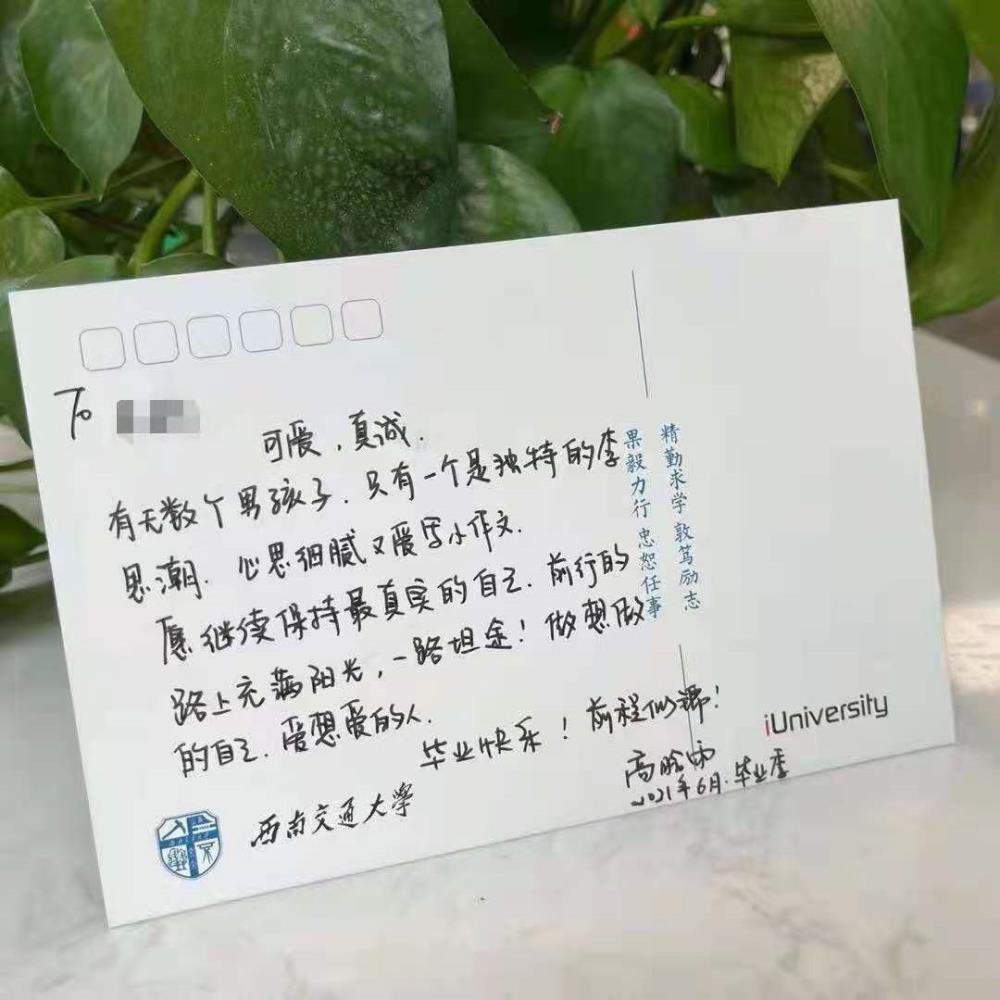 To
可爱,真诚.
有无数个男孩子.只有一个是独特的李
思潮.心思细腻又爱写小作文.
愿继续保持最真实的自己.前行的
路上充满阳光,一路坦途!做想做
的自己.爱想爱的人.
毕业快乐!前程似锦!
高晗
2021年6月.毕业季
西南交通大学
精勤求学 敦笃励志
果毅力行 忠恕任事
iUniversity